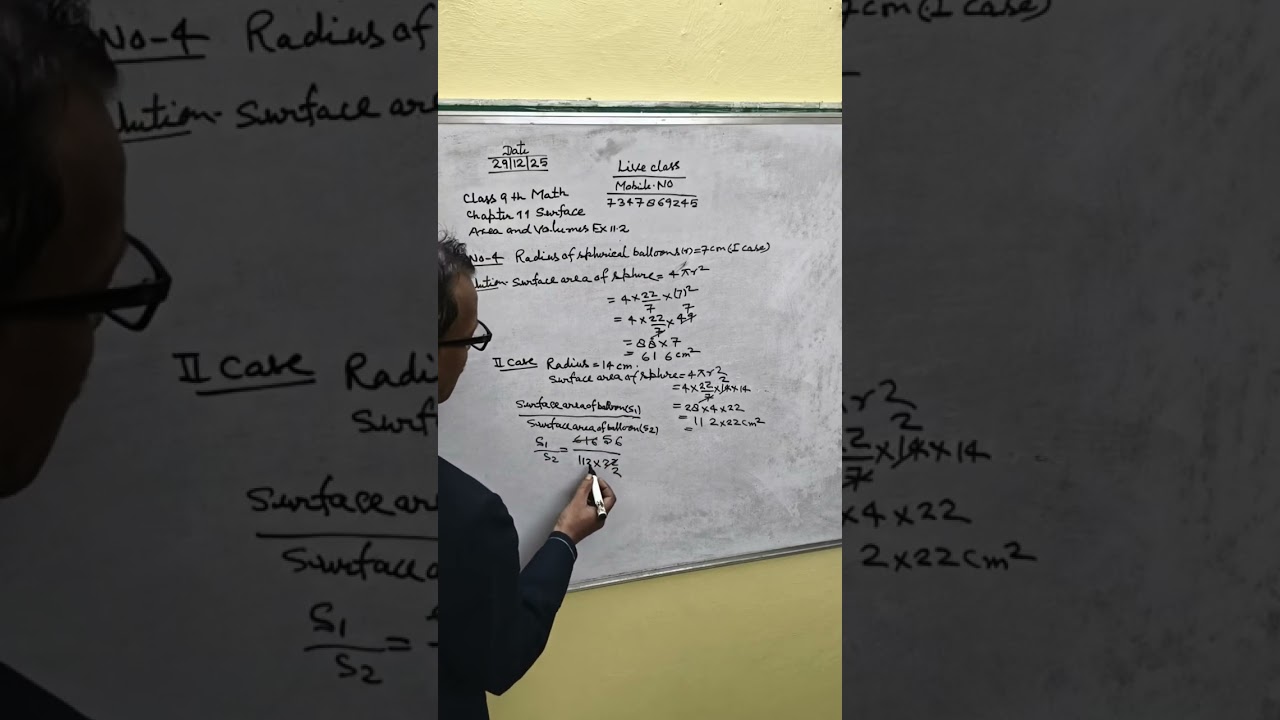 Date
29/12/25
Live class
Mobile.NO
7347869245
Class 9th Math
Chapter 11 Surface
Area and Volumes Ex 11.2
No-4 Radius of spherical balloons(r)=7cm(I case)
lution- Surface area of sphire = 4πr²
= 4×22/7×(7)²
= 4×22/7×49 7
= 88×7
= 616cm²
II Case Radius = 14cm.
Surface area of sphire = 4πr²
= 4×22/7×14×14 2
= 28×4×22
= 112×22cm²
=
Surface area of balloon(S1)
Surface area of balloon(S2)
S1/S2 = 616 56
112×22 2